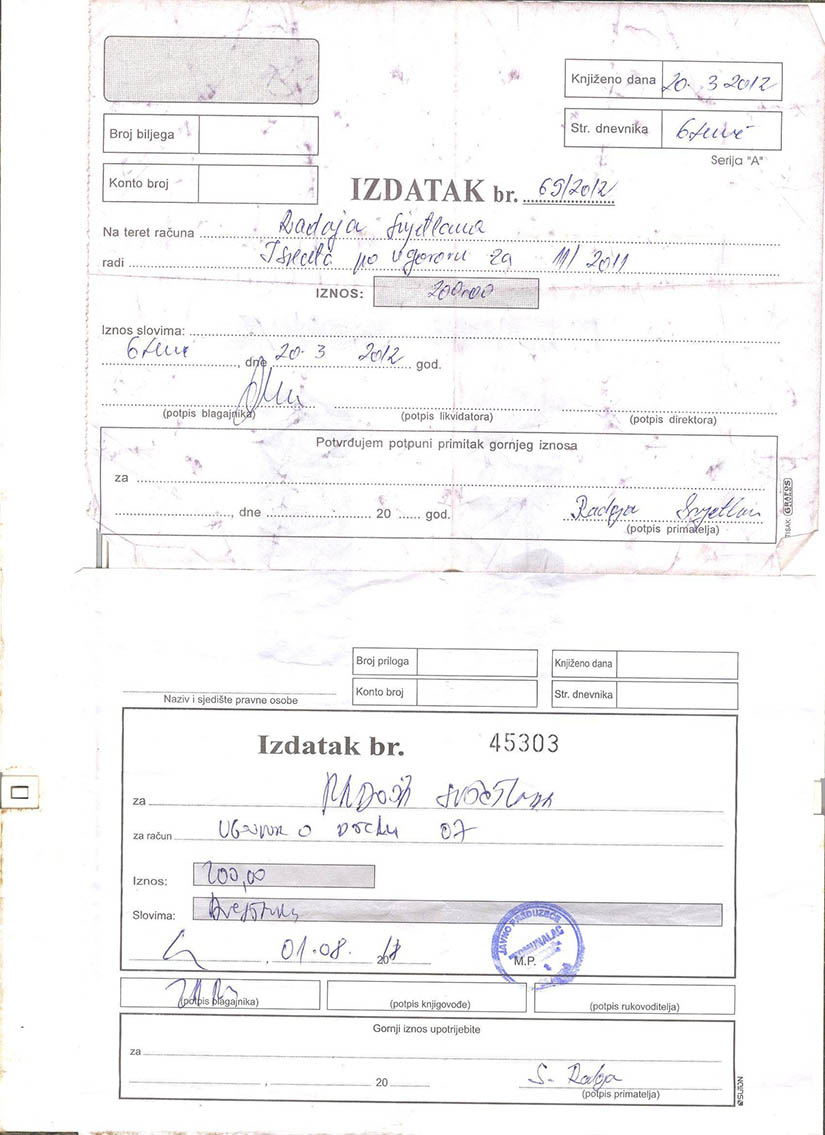 Knjiženo dana 20. 3 2012
Broj biljega
Str. dnevnika
Serija "A"
Konto broj
IZDATAK br. 69/2012
Na teret računa Radoja Svjetlana
radi Isplata po ugovoru za 11/2011
IZNOS: 200,00
Iznos slovima:
, dne 20. 3 2012 god.
(potpis blagajnika) (potpis likvidatora) (potpis direktora)
Potvrđujem potpuni primitak gornjeg iznosa
za
, dne 20 god. Radoja
(potpis primatelja)
TISAK: GRAFOS
Broj priloga Knjiženo dana
Konto broj Str. dnevnika
Naziv i sjedište pravne osobe
Izdatak br. 45303
za
za račun 07
Iznos: 200,00
Slovima:
JAVNO PREDUZEĆE
KOMUNALAC
, 01.08. 20
M.P.
(potpis blagajnika) (potpis knjigovođe) (potpis rukovoditelja)
Gornji iznos upotrijebite
za
, 20 S. Radoja
(potpis primatelja)